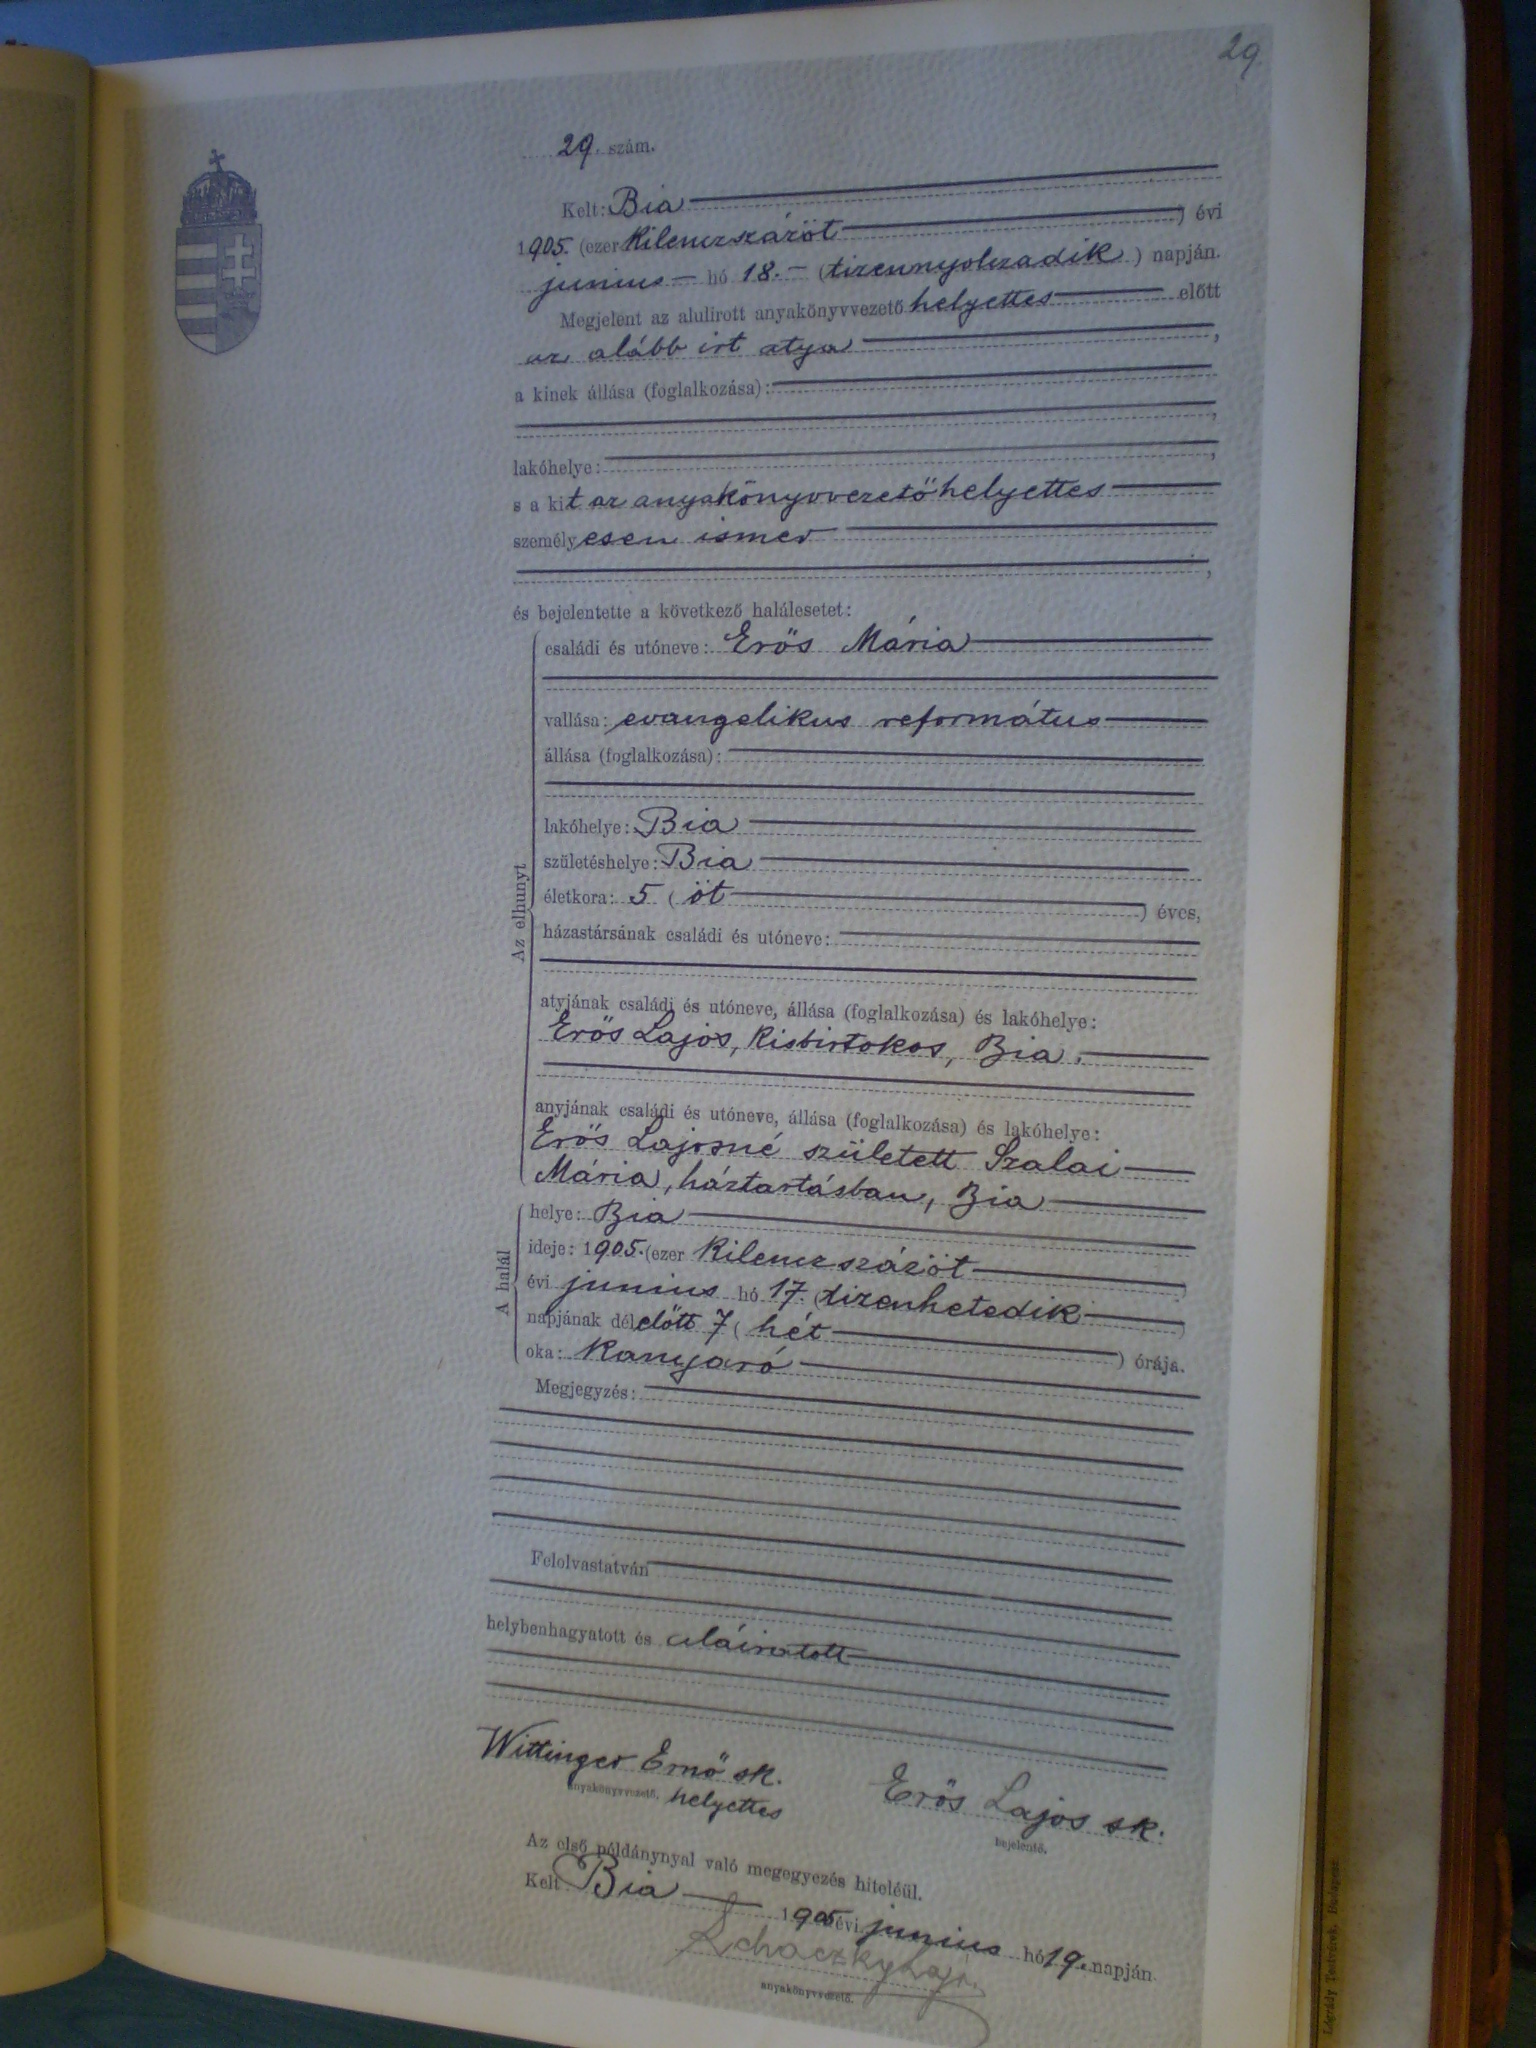 29
29. szám.
Kelt: Bia
1905. (ezer Kilenczszázöt ) évi
junius hó 18. (tizennyolczadik ) napján.
Megjelent az alulirott anyakönyvvezető helyettes előtt
az alább irt atya ,
a kinek állása (foglalkozása):
,
lakóhelye: ,
s a kit az anyakönyvvezetőhelyettes
személyesen ismer
,
és bejelentette a következő halálesetet:
Az elhunyt
családi és utóneve: Erős Mária
vallása: evangelikus református
állása (foglalkozása):
lakóhelye: Bia
születéshelye: Bia
életkora: 5 ( öt ) éves,
házastársának családi és utóneve:
atyjának családi és utóneve, állása (foglalkozása) és lakóhelye:
Erős Lajos, Kisbirtokos, Bia.
anyjának családi és utóneve, állása (foglalkozása) és lakóhelye:
Erős Lajosné született Szalai
Mária, háztartásban, Bia
A halál
helye: Bia
ideje: 1905. (ezer Kilenczszázöt )
évi junius hó 17. (tizenhetedik )
napjának délelőtt 7 ( hét ) órája.
oka: Kanyaró
Megjegyzés:
Felolvastatván
helybenhagyatott és aláiratott
Wittinger Ernő sk.
anyakönyvvezető. helyettes
Erős Lajos sk.
bejelentő.
Az első példánynyal való megegyezés hiteléül.
Kelt Bia 1905 évi junius hó 19. napján
anyakönyvvezető.
Légrády Testvérek, Budapest